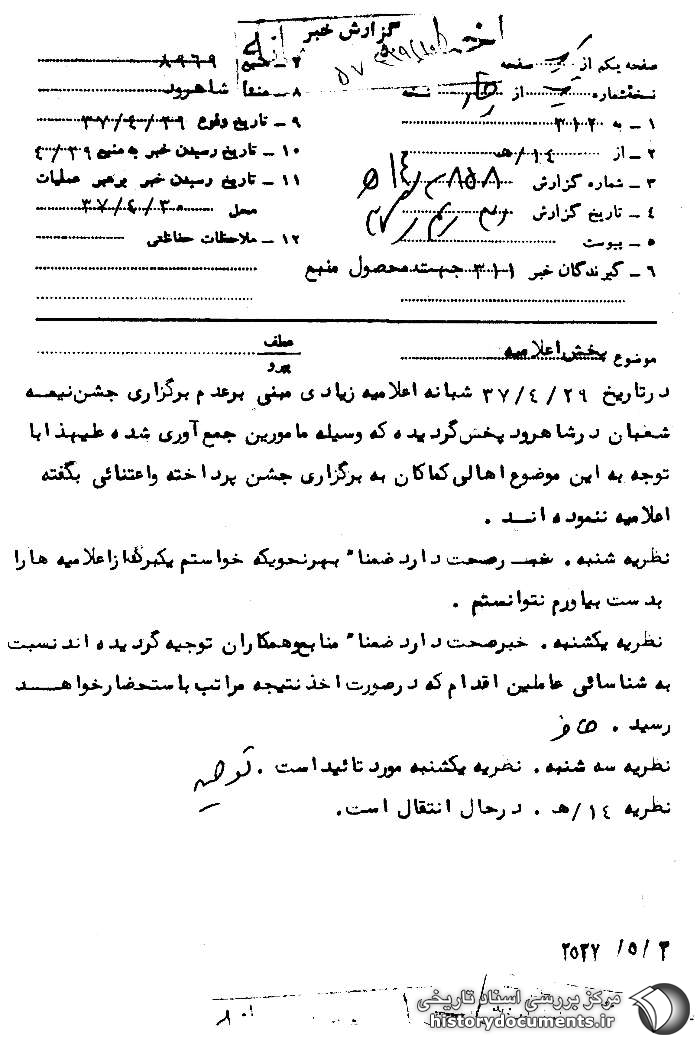 گزارش خبر
صفحه یکم از یک صفحه
نسخه شماره از نسخه
۱ – به ۳۱۲
۲ – از ۱۴/هـ
۳ – شماره گزارش ۸۵۸
۴ – تاریخ گزارش
۵ – پیوست
۶ – گیرندگان خبر ۳۱۱ جهت محصول منبع
۷ – منبع ۸۹۶۹
۸ – منشأ شاهرود
۹ – تاریخ وقوع ۳۷/۴/۲۹
۱۰ – تاریخ رسیدن خبر به منبع ۴/۲۹
۱۱ – تاریخ رسیدن خبر برهبر عملیات
محل ۳۷/۴/۳۰
۱۲ – ملاحظات حفاظتی
موضوع پخش اعلامیه
عطف
پیرو
درتاریخ ۳۷/۴/۲۹ شبانه اعلامیه زیادی مبنی برعدم برگزاری جشن نیمه
شعبان درشاهرود پخش گردیده که وسیله مامورین جمع آوری شده علیهذا با
توجه به این موضوع اهالی کماکان به برگزاری جشن پرداخته واعتنائی بگفته
اعلامیه ننموده اند .
نظریه شنبه . خبر صحت دارد ضمناً بهرنحویکه خواستم یکبرگ از اعلامیه ها را
بدست بیاورم نتوانستم .
نظریه یکشنبه . خبرصحت دارد ضمناً منابع وهمکاران توجیه گردیده اند نسبت
به شناسائی عاملین اقدام که درصورت اخذ نتیجه مراتب باستحضار خواهد
رسید .
نظریه سه شنبه . نظریه یکشنبه مورد تائید است . توجیه
نظریه ۱۴/هـ . درحال انتقال است.
۲۵۳۷/۵/۲
مرکز بررسی اسناد تاریخی
historydocuments.ir